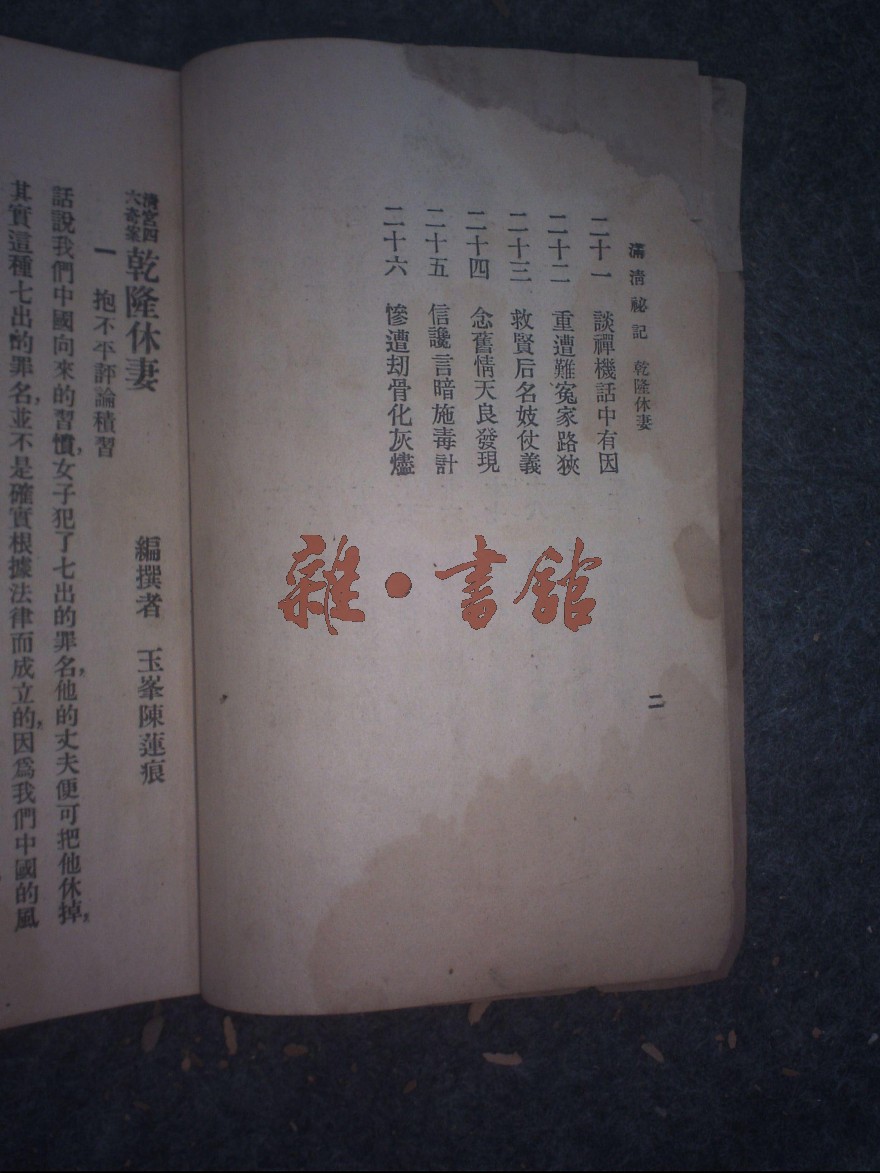 滿淸祕記 乾隆休妻
二十一 談禪機話中有因
二十二 重遭難冤家路狹
二十三 救賢后名妓仗義
二十四 念舊情天良發現
二十五 信讒言暗施毒計
二十六 慘遭刧骨化灰燼
二
雜·書館
淸宮四
大奇案
乾隆休妻
編撰者 玉峯陳蓮痕
一 抱不平評論積習
話說我們中國向來的習慣,女子犯了七出的罪名,他的丈夫便可把他休掉,
其實這種七出的罪名,並不是確實根據法律而成立的,因爲我們中國的風